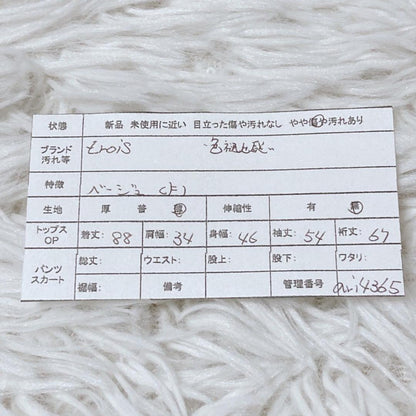 状態 新品 未使用に近い 目立った傷や汚れなし やや傷や汚れあり
ブランド 汚れ等 trois
特徴 ベージュ (F)
生地 厚 普 薄 伸縮性 有 無
トップス OP 着丈: 88 肩幅: 34 身幅: 46 袖丈: 54 裄丈: 67
パンツ スカート 総丈: ウエスト: 股上: 股下: ワタリ:
裾幅: 備考 管理番号 4365